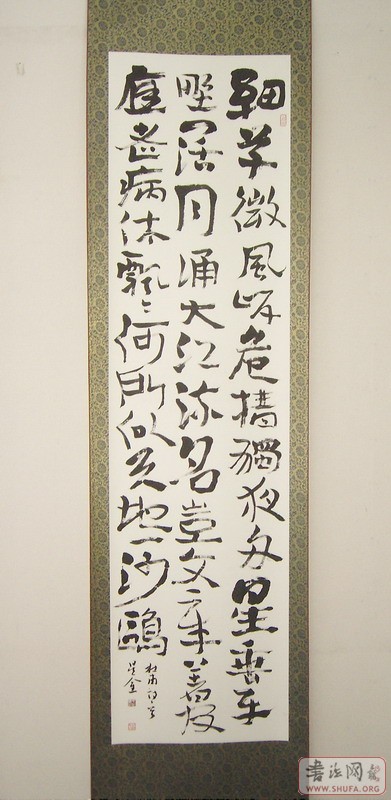 細草微風岸危檣獨夜舟星垂平
野闊月涌大江流名豈文章著官
應老病休飄〻何所似天地一沙鷗
杜甫詩
書法网
WWW.SHUFA.ORG